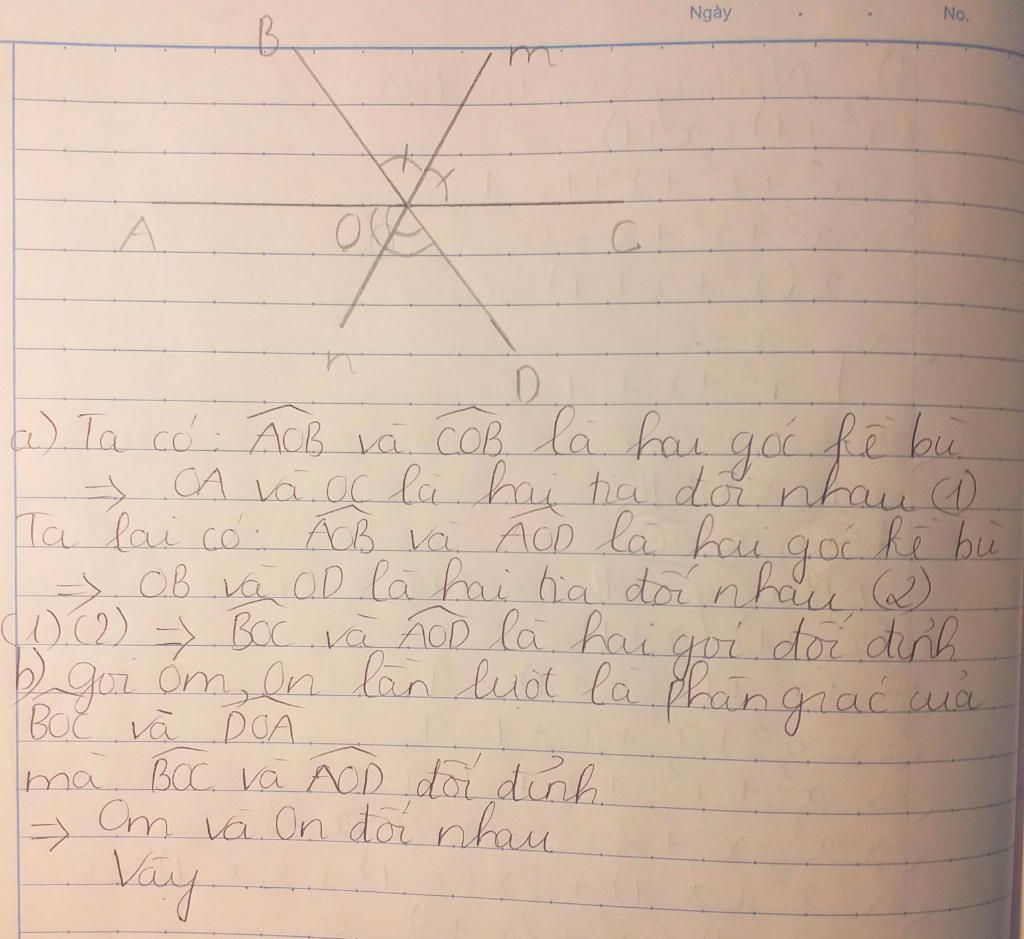 Ngày . . No.
B m
A O C
n D
a) Ta có: AOB và COB là hai góc kề bù
⇒ OA và OC là hai tia đối nhau (1)
Ta lại có: AOB và AOD là hai góc kề bù
⇒ OB và OD là hai tia đối nhau (2)
(1)(2) ⇒ BOC và AOD là hai góc đối đỉnh
b) gọi Om, On lần lượt là phân giác của
BOC và DOA
mà BOC và AOD đối đỉnh
⇒ Om và On đối nhau
Vậy